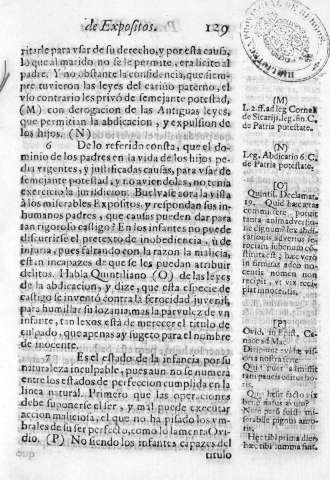 de Expositos. 129
ritarle para vsar de su derecho, y por esta causa,
lo que al marido no se le permite, era licito al
padre. Y no obstante la confidencia, que siem-
pre tuvieron las leyes del cariño paterno, el
vso contrario les privò de semejante potestad,
(M) con derogacion de las Antiguas leyes,
que permitian la abdicacion, y expulsion de
los hijos. (N)
6 De lo referido consta, que el do-
minio de los padres en la vida de los hijos pe-
dia vrgentes, y justificadas causas, para vsar de
semejante potestad, y no aviendolas, no tenia
exercicio la jurisdicion. Buelvase aora la vista
à los miserables Expositos, y respondan sus in-
humanos padres, que causas pueden dar para
tan rigoroso castigo? En los infantes no puede
discurrirse el pretexto de inobediencia, ù de
injuria, pues faltando con la razon la malicia,
estàn incapaces de que se les puedan atribuir
delitos. Habla Quintiliano (O) de las leyes
de la abdicacion, y dize, que esta especie de
castigo se inventò contra la ferocidad juvenil,
para humillar su lozania; mas la parvulez de vn
infante, tan lexos està de merecer el titulo de
culpado, que apenas ay sugeto para el nombre
de inocente.
7 Es el estado de la infancia por su
naturaleza inculpable, pues aun no se numera
entre los estados de perfeccion cumplida en la
linea natural. Primero que las operaciones
debe suponerse el ser, y mal puede executar
accion maliciosa, el que no ha pisado los vm-
brales de su ser perfecto, como lo lamenta Ovi-
dio. (P) No siendo los infantes capazes del
titulo
(M)
L. 2. ff. ad leg. Cornel.
de Sicarijs, leg. fin. C.
de Patria potestate.
(N)
Leg. Abdicatio 6. C.
de Patria potestate.
[O]
Quintil. Declamat.
19. Quid hæc ætas
committere potuit
[P]
Ovid. in Epist. Ca-
nace ad Ma.